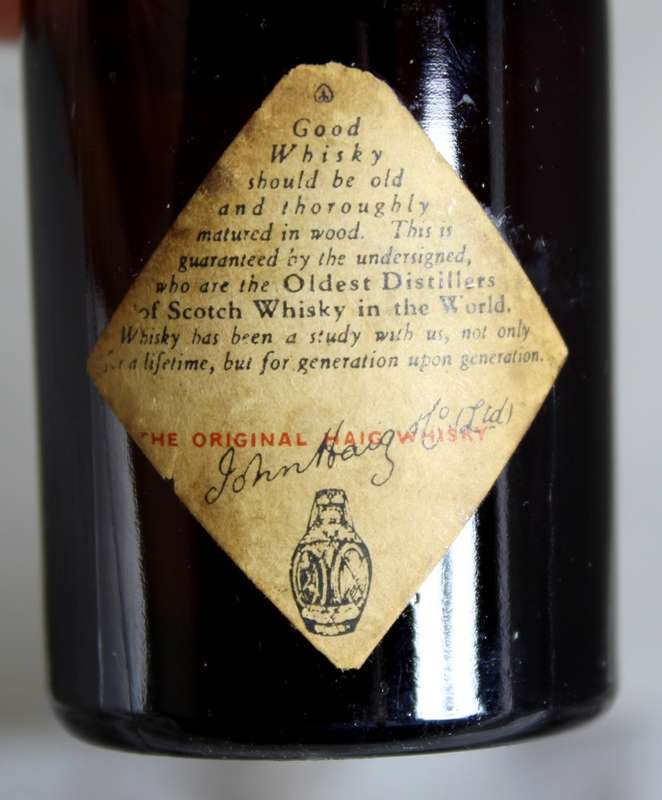 Good
Whisky
should be old
and thoroughly
matured in wood. This is
guaranteed by the undersigned,
who are the Oldest Distillers
of Scotch Whisky in the World.
Whisky has been a study with us, not only
for a lifetime, but for generation upon generation.
THE ORIGINAL HAIG WHISKY
John Haig &Co (Ltd)